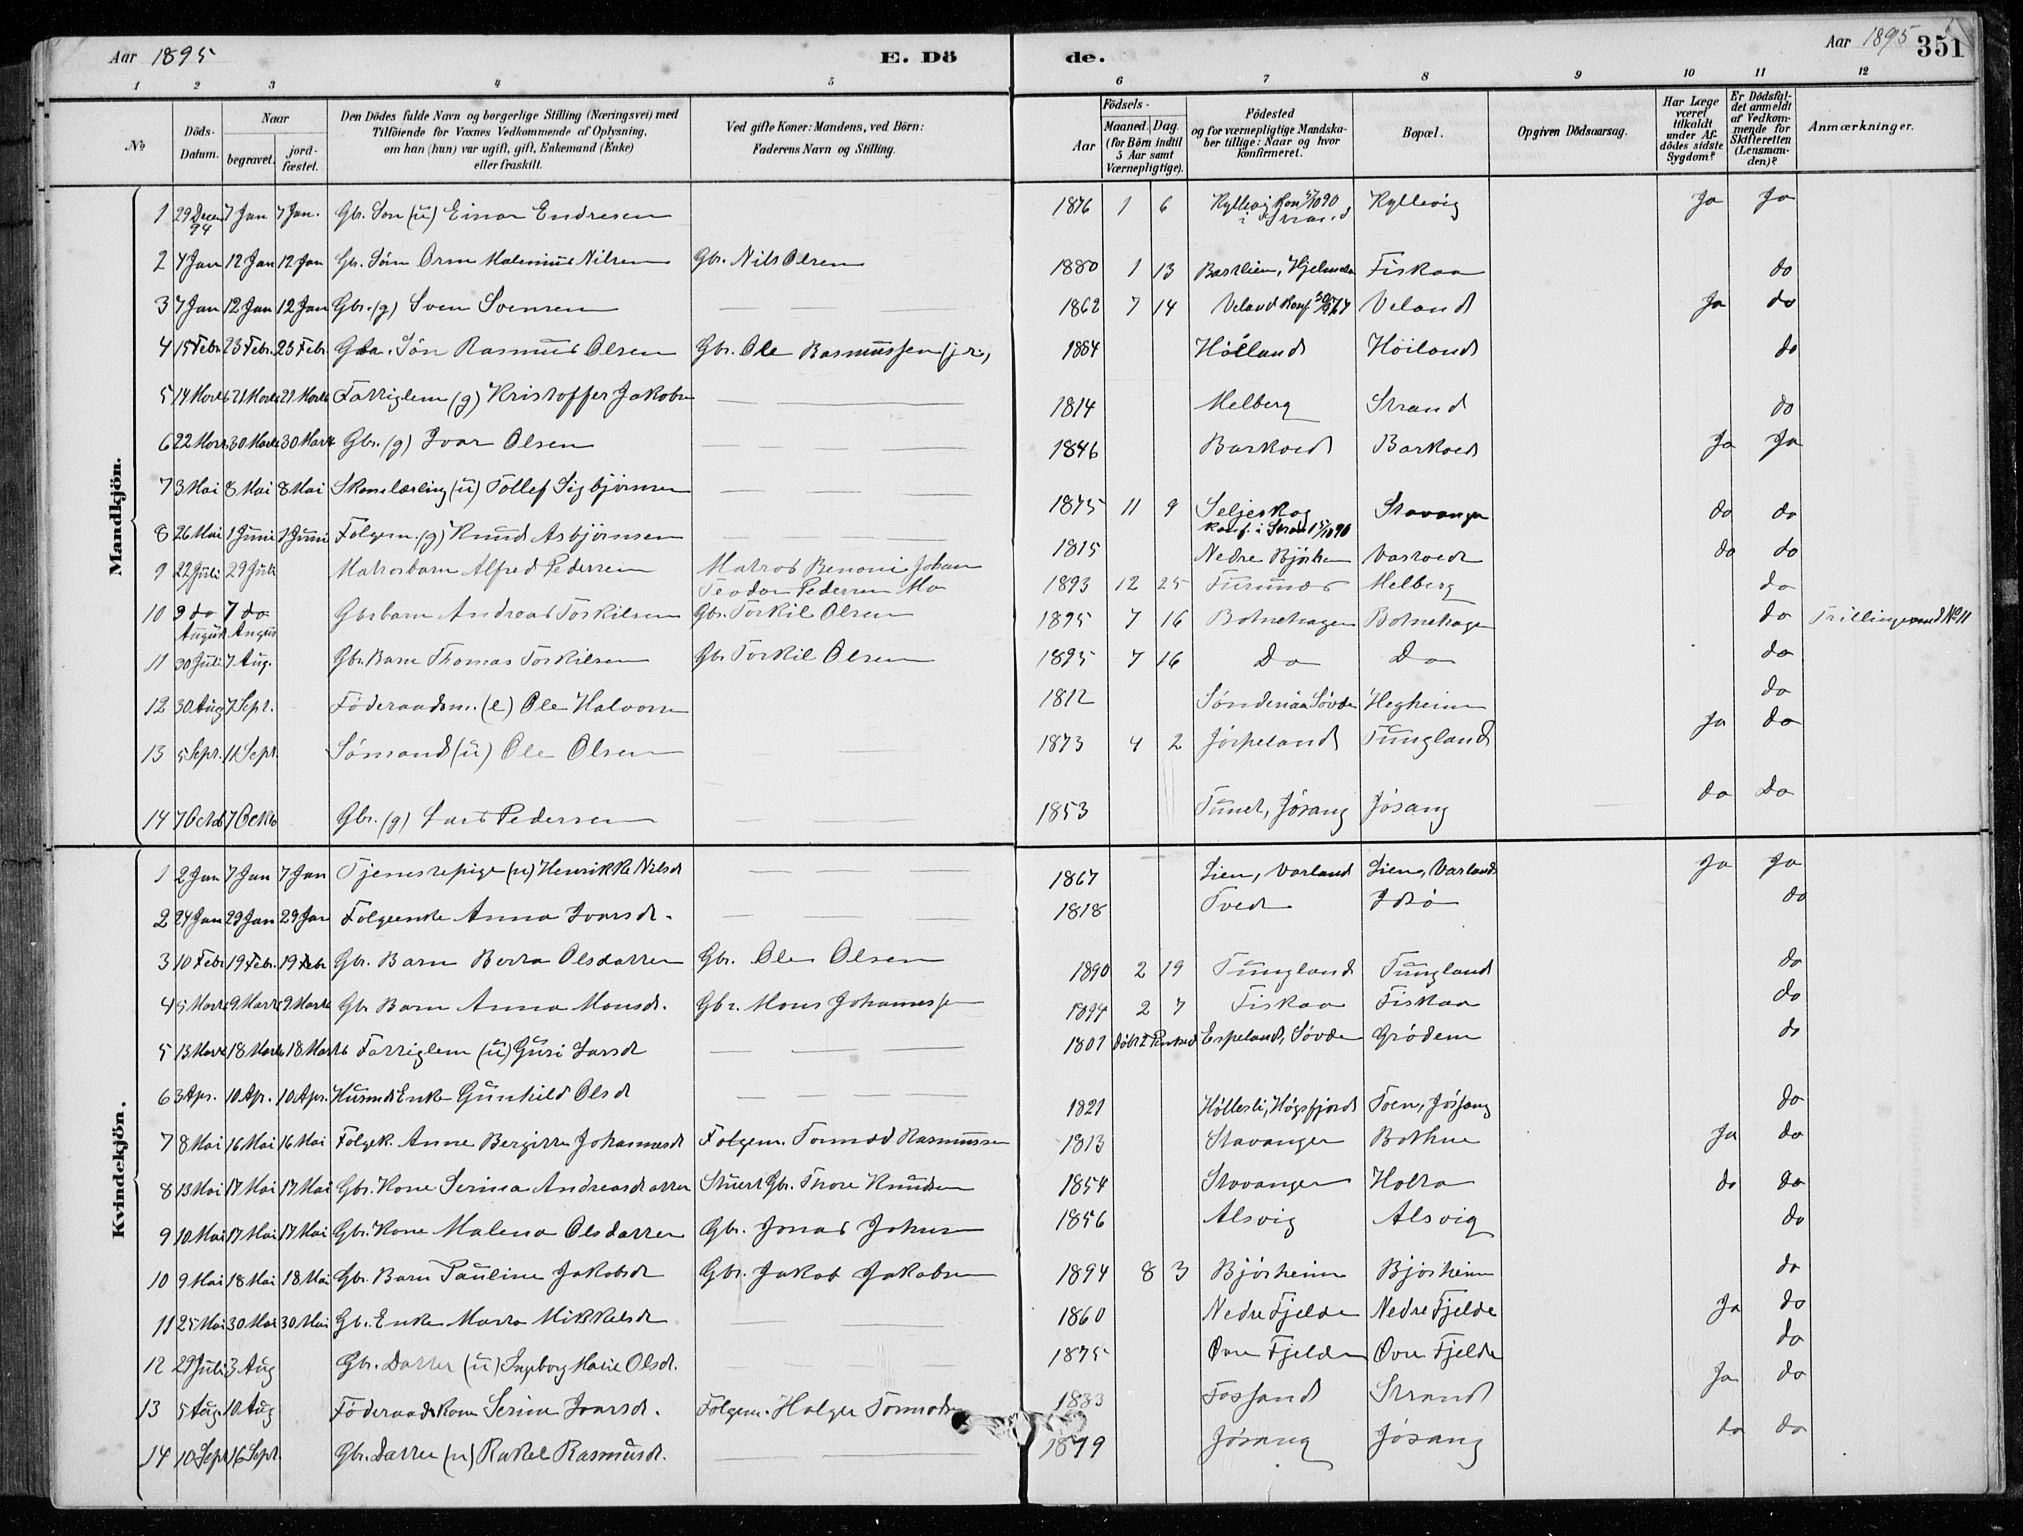 Aar 1895 E. Dö de. Aar 1895 351
1 2 3 4 5 6 7 8 9 10 11 12
№ Döds-Datum. Naar begravet. jordfæstet.
Den Dödes fulde Navn og borgerlige Stilling (Næringsvei) med Tilföiende for Voxnes Vedkommende af Oplysning, om han (hun) var ugift, gift, Enkemand (Enke) eller fraskilt.
Ved gifte Koner: Mandens, ved Börn: Faderens Navn og Stilling.
Födsels- Aar Maaned. Dag. (for Börn indtil 5 Aar samt Værnepligtige).
Födested og for værnepligtige Mandskaber tillige: Naar og hvor konfirmeret.
Bopæl.
Opgiven Dödsaarsag.
Har Læge været tilkaldt under Afdödes sidste Sygdom?
Er Dödsfaldet anmeldt af Vedkommende for Skifteretten (Lensmanden)?
Anmærkninger.
Mandkjön.
1 29 Decem 94 7 Jan 7 Jan. Gbr. Søn (u) Einar Endresen 1876 1 6 Kyllevig Konf. i Strand Kyllevig Ja Ja
2 4 Jan 12 Jan 12 Jan Gbr. Søn Orm Malenius Nilsen Gbr. Nils Olsen 1880 1 13 Bastlien, Hjelmeland Fiskaa do
3 7 Jan 12 Jan 12 Jan Gbr. (g) Sven Svensen 1862 7 14 Veland Konf. Veland Ja do
4 15 Febr 23 Febr. 23 Febr. Søn Rasmus Olsen Gbr. Ole Rasmussen (jr.) 1884 Hölland Höiland do
5 14 Marts 21 Marts 21 Marts Fattiglem (g) Kristoffer Jakobsen 1814 Melberg Strand do
6 22 Marts 30 Marts 30 Marts Gbr. (g) Ivar Olsen 1846 Barkved Barkved Ja Ja
7 3 Mai 8 Mai 8 Mai Skomlærling (u) Tollef Sigbjørnsen 1875 11 9 Seljeskog Konf. i Strand Stavanger do do
8 26 Mai 1 Juni 1 Juni Folgem. (g) Knud Asbjørnsen 1815 Nedre Bjørheim Vastvedt do do
9 22 Juli 29 Juli Matrosbarn Alfred Pedersen Matros Benoni Johan
Teodor Pedersen 1893 12 25 Furunes Melberg do
10 9 do 7 do August August Gbrbarn Andreas Torkilsen Gbr. Torkil Olsen 1895 7 16 Botnehagen Botnehagen do Trillinger med No 11
11 30 Juli 7 Aug. Gbr Barn Thomas Torkilsen Gbr Torkil Olsen 1895 7 16 Do Do do
12 30 Aug 7 Sept. Föderaadsm. (e) Ole Halvorsen 1812 Søndenaa Søvde Hegheim do
13 5 Sept. 11 Sept. Sømand (u) Ole Olsen 1873 4 2 Jørpeland Tungland Ja do
14 7 Octob 7 Octb Gbr. (g) Lars Pedersen 1853 Tunet, Jøsang Jøsang do Do
Kvindekjön.
1 2 Jan 7 Jan 7 Jan Tjenestepige (u) Henrikke Nilsdt 1867 Lien, Varland Lien, Varland Ja Ja
2 24 Jan 29 Jan 29 Jan Folgeenke Anna Ivarsdt. 1818 Tvedt Idsø do
3 10 Febr 19 Febr. 19 Febr Gbr. Barn Berta Olsdatter Gbr. Ole Olsen 1890 2 19 Tungland Tungland do
4 5 Marts 9 Marts 9 Marts Gbr Barn Anna Monsdt. Gbr. Mons Johannessen 1894 2 7 Fiskaa Fiskaa do
5 13 Marts 18 Marts 18 Marts Fattiglem (u) Guri Larsdt 1801 Döbt Espeland, Søvde Grödem do
6 3 Apr. 10 Ap. 10 Apr. Husmds Enke Gunhild Olsdt 1821 Höllesli, Høgsfjord Toen, Jøssang do
7 8 Mai 16 Mai 16 Mai Folgek. Anne Bergitte Johannesdt Folgem. Tormod Rasmussen 1813 Stavanger Bothne Ja do
8 13 Mai 17 Mai 17 Mai Gbr. Kone Serina Andreasdatter Gbr. Thore Knudsen 1854 Stavanger Holta do do
9 10 Mai 17 Mai 17 Mai Gbr. Kone Malena Olsdatter Gbr. Jonas Johnsen 1856 Alsvig Alsvig do
10 9 Mai 18 Mai 18 Mai Gbr. Barn Pauline Jakobsdt Gbr. Jakob Jakobsen 1894 8 3 Bjørheim Bjørheim do
11 25 Mai 30 Mai 30 Mai Gbr. Enke Marta Mikkelsdt 1860 Nedre Fjelde Nedre Fjelde Ja do
12 29 Juli 3 Aug Gbr. Datter (u) Ingeborg Marie Olsdt. 1875 Øvre Fjelde Øvre Fjelde do
13 5 Aug. 10 Aug Föderaadskone Serine Ivarsdt. Folgem. Holger Tormodsen 1833 Fossand Strand Ja do
14 10 Sept 16 Sept. Gbr. Datter (u) Rakel Rasmusdt. 1879 Jøsang Jøsang do do